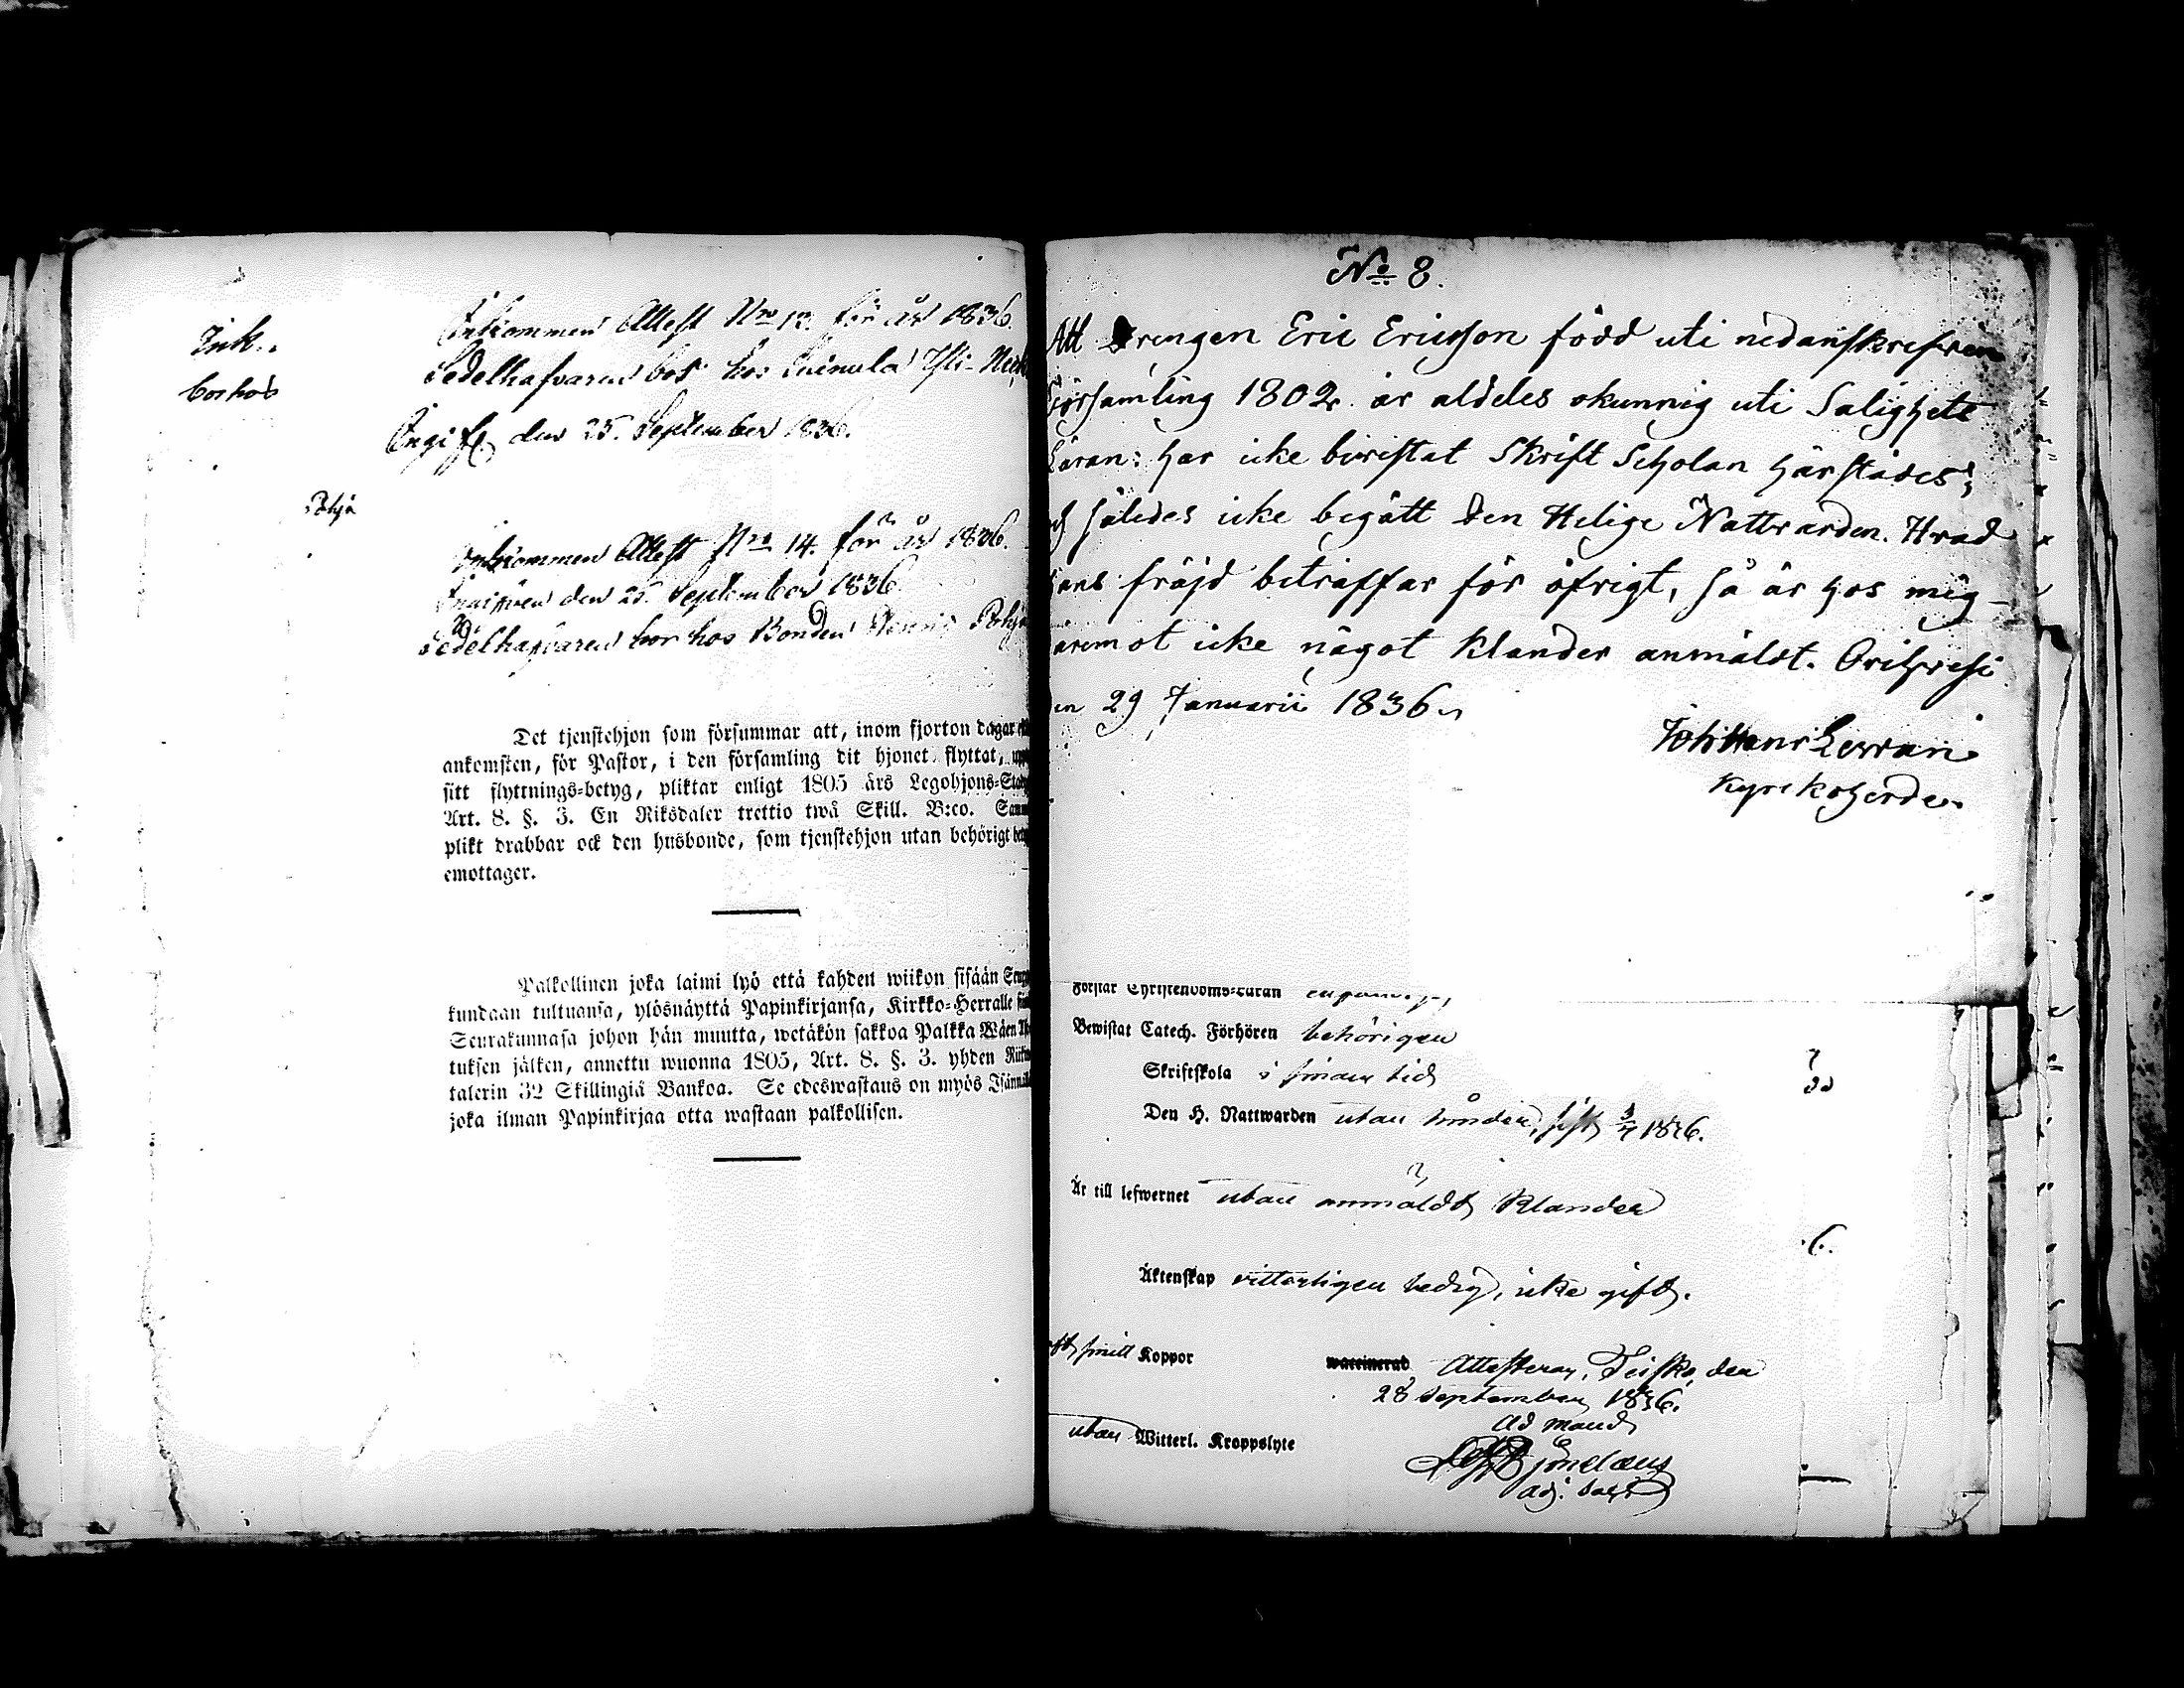 Ink..
bor hos
Pohja
Inkommen Attest Nro 13. för år 1836.
Sedelhafvaren bor hos Suinula Yli-
Ingif. den 25. September 1836.
Inkommen Attest Nro 14. för år 1836.
Ingifven den 25. September 1836.
Sedelhafvaren bor hos Bonden Pohja
Det tjenstehjon som försummar att, inom fjorton dagar
ankomsten, för Pastor, i den församling dit hjonet flyttat,
sitt flyttnings-betyg, pliktar enligt 1805 års Legohjons-
Art. 8. §. 3. En Riksdaler trettio twå Skill. B:co.
plikt drabbar ock den husbonde, som tjenstehjon utan behörigt
emottager.
Palkollinen joka laimi lyö että kahden wiikon sisään
kundaan tultuansa, ylösnäyttä Papinkirjansa, Kirkko-Herralle
Seurakunnasa johon hän muutta, wetäkön sakkoa Palkka Wäen
tuksen jälken, annettu wuonna 1805, Art. 8. §. 3. yhden
talerin 32 Skillingiä Bankoa. Se edeswastaus on myös
joka ilman Papinkirjaa otta wastaan palkollisen.
No 8.
Att Drengen Eric Ericsson född uti nedanskrefven
Församling 1802. är aldeles okunnig uti Salighets
Läran: har icke bivistat Skrift Scholan härstädes;
således icke begått Den Helige Nattvarden. Hvad
hans fräjd beträffar för öfrigt, så är hos mig
däremot icke något Klander anmäldt. Orihvesi
den 29 Januarii 1836.
Joh Hans Levan
Kyrckoherde.
Förstår Christendoms-Läran
Bewistat Catech. Förhören behörigen
Skriftskola i sinom tid
Den H. Nattwarden utan hinder, sist 3/7 1836.
Är till lefwernet utan anmäldt Klander
6.
Äktenskap vitterligen ledig, icke gift.
haft, smitt Koppor waccinerad Attesterar, Teisko, den
28 September 1836.
Ad mand.
utan Witterl. Kroppslyte
adj. sacri